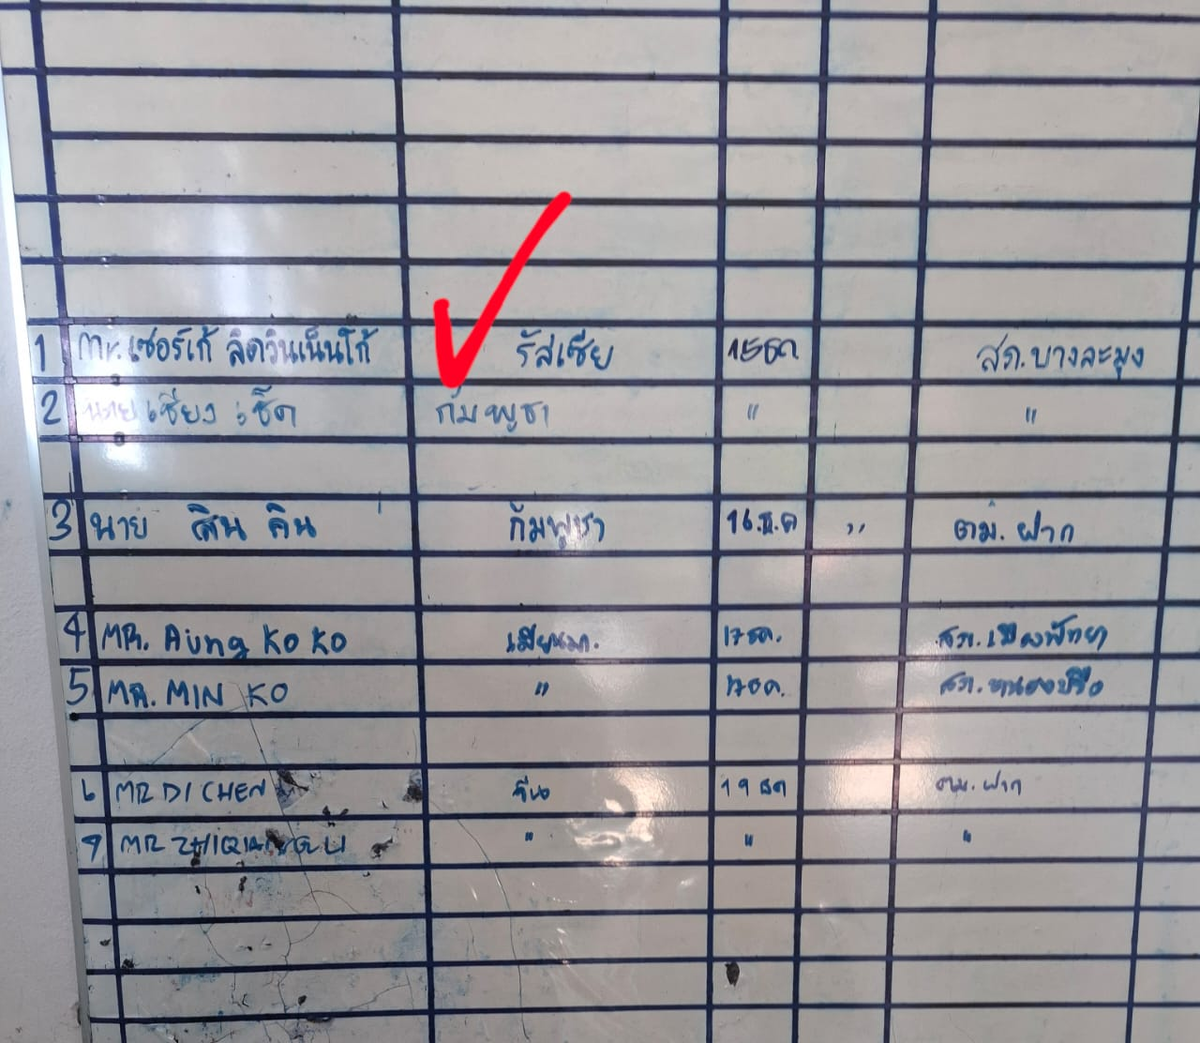 1 Mr. เซอร์เก้ ลิตวินเน็นโก้ รัสเซีย 15ธค สภ.บางละมุง
2 นาย เชียง เช็ด กัมพูชา " "
3 นาย สิน คิน กัมพูชา 16.ธ.ค " ตม. ฝาก
4 MR. Aung KO KO เมียนมา. 17ธค. สภ.เมืองพัทยา
5 MR. MIN KO " 17ธค. สภ.หนองปรือ
6 MR DI CHEN จีน 19 ธค ตม. ฝาก
7 MR ZHIQIANG LI " " "